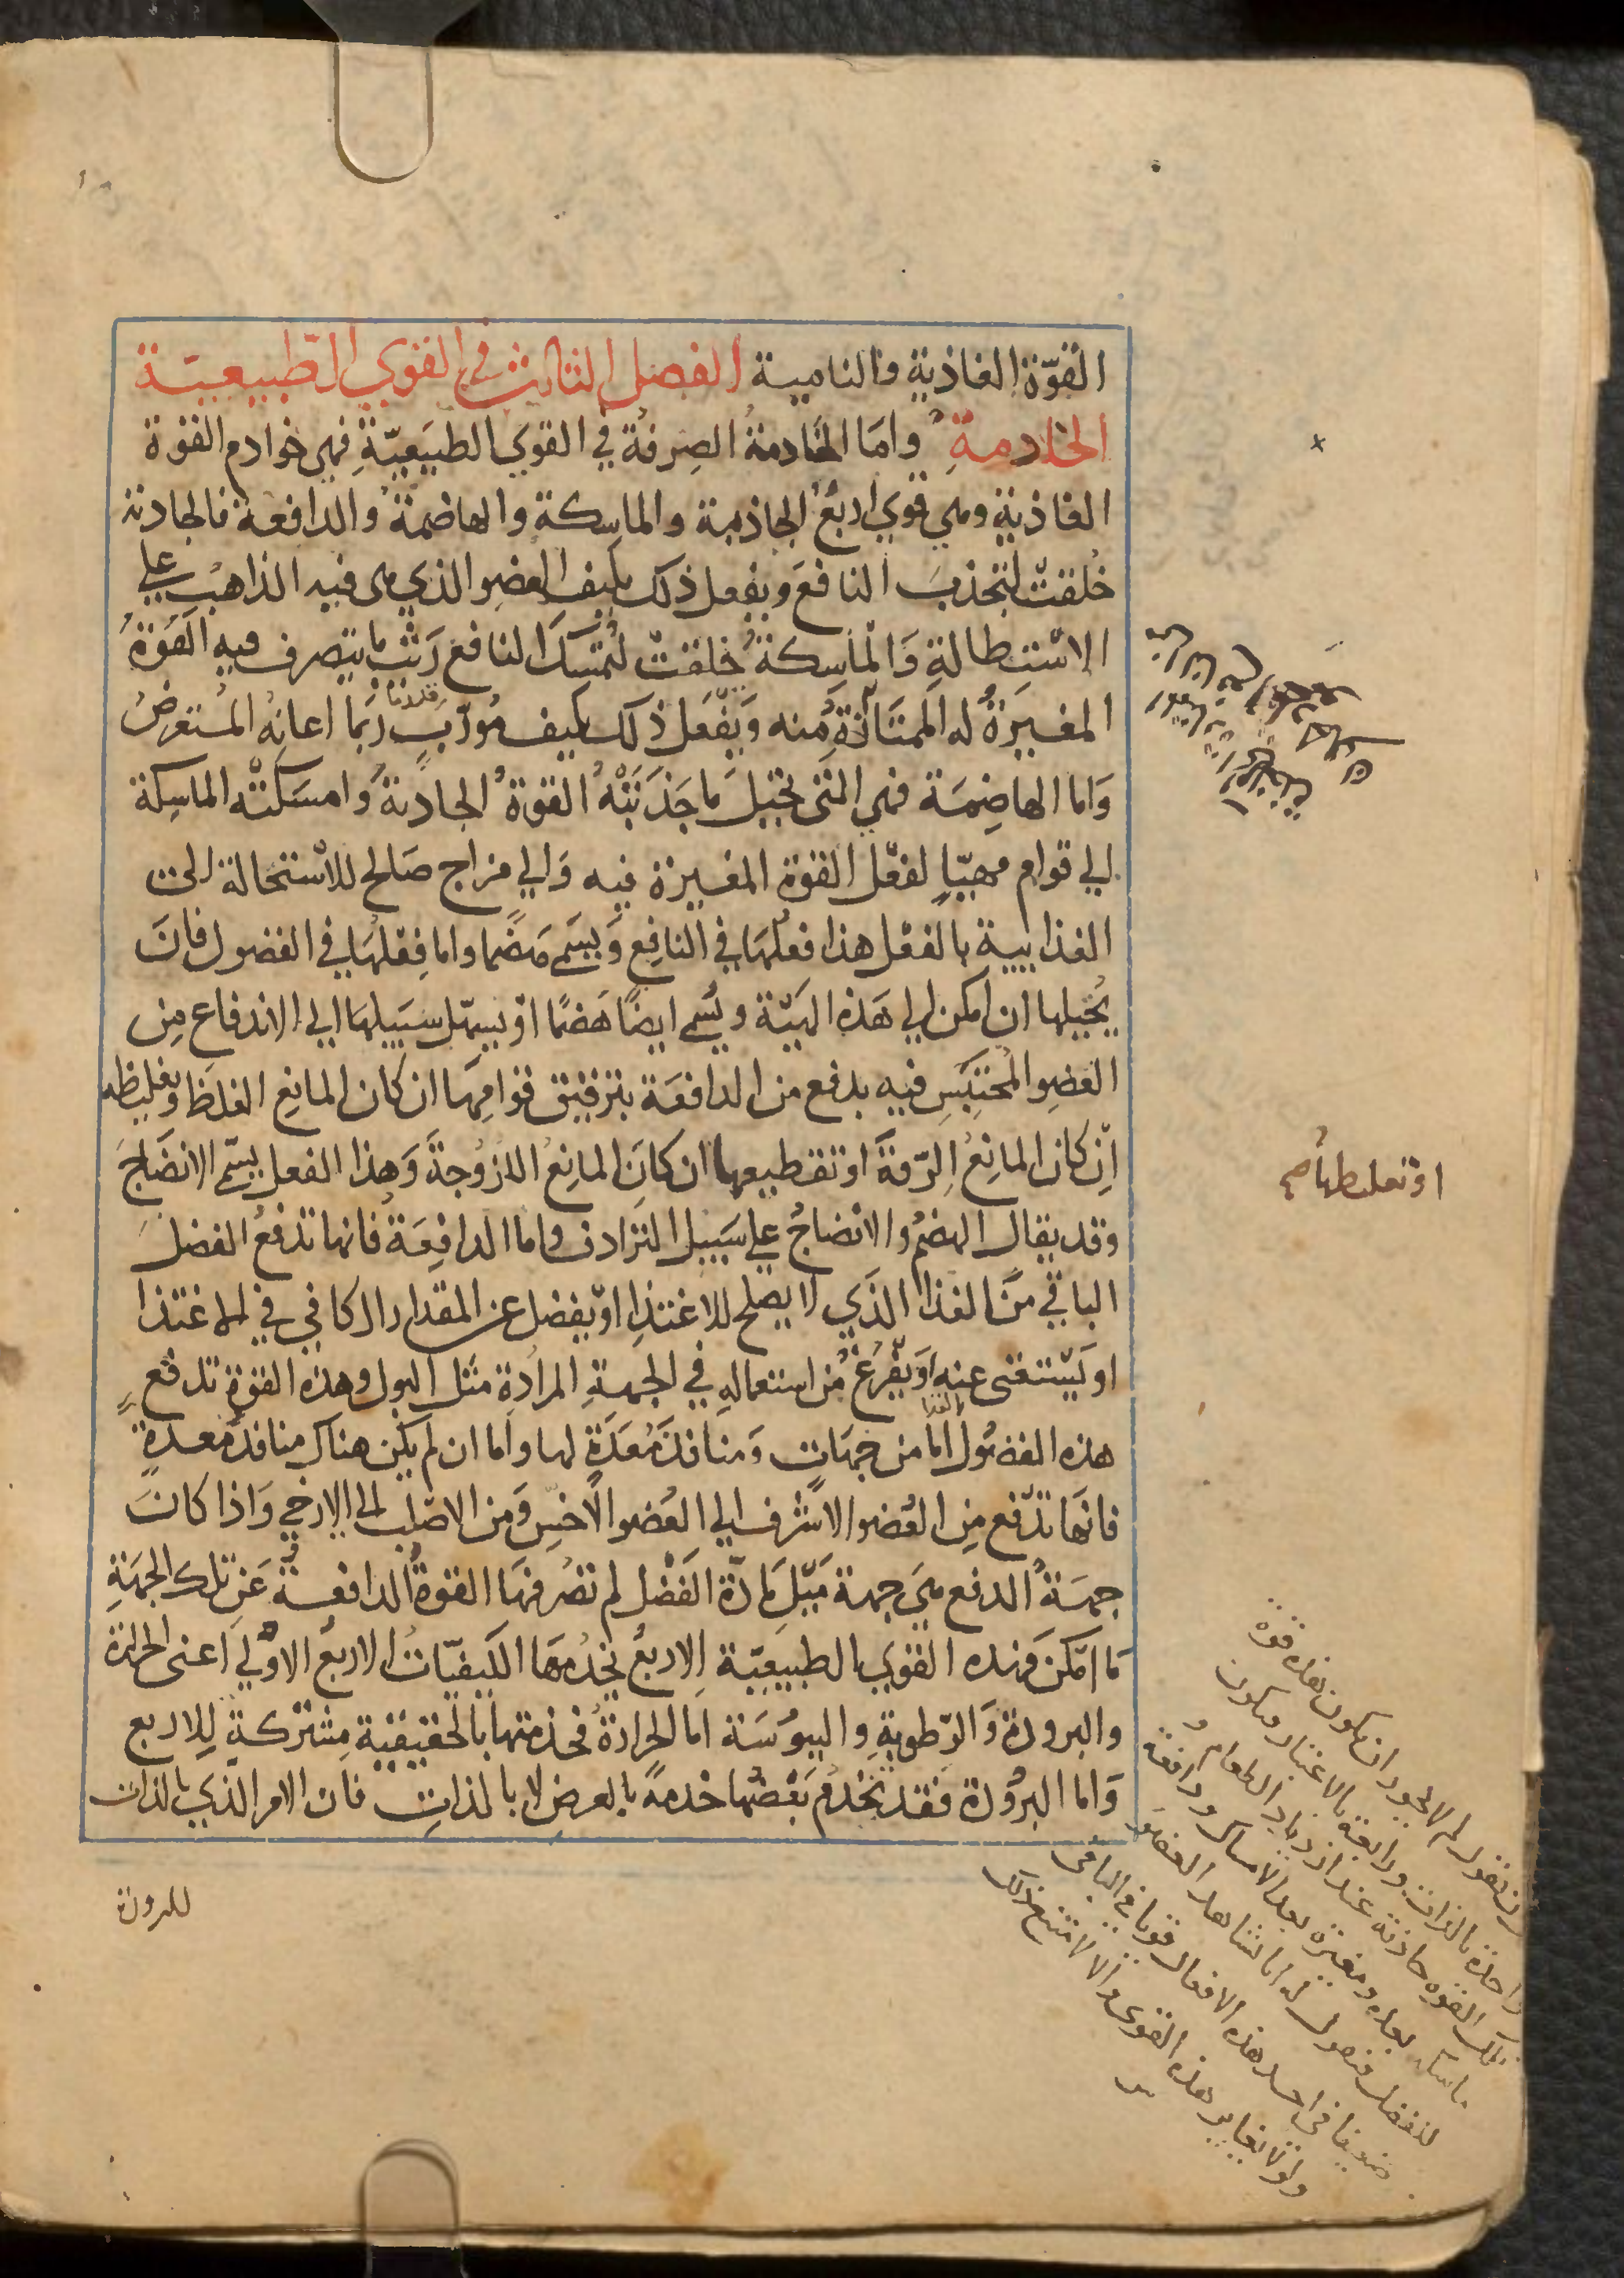 القوّة الغاذية والنامية الفصل الثالث في القوي الطّبيعيّة
الخادمةِ وامَا الخادمةُ الصِرفةُ في القوي الطبيَعيّةِ فهي خوادم القوّة
الغاذية وهي قوي اربعٌ الجاذبة والماسِكة والهاضمةُ والدافعة فالجاذبة
خُلقتْ لتجذبَ النافعَ ويفعل ذلك بليف العضو الذي هي فيه الذاهب علي
الاسْتطالةِ وَالماسِكةُ خلقتْ لتُمسكَ النافع رَيْث ما يتصرف فيه القوّةُ
المغيّرَةُ له الممتَازَةُ مُنه وَيفْعَل ذلك بليف مُورّبٍ رُبَما اعانهُ المستعرضُ
وَاما الهاضِمَة فهي التى تحيلَ ما جَذبَتْهُ القوةُ الجاذبةُ وَامسَكتْه الماسِكة
الي قوام مهيّاٍ لفعْل القوة المغيرة فيه وَالي مزاج صَالح للاسْتحالة الي
الغذايية بالفعْل هذا فعلهَا في النافِع وَيسَمي هَضمًا واما فِعْلهَا في الفضول فانَ
يُحيلها ان امكن الي هَذه الهيَّة ويُسمي ايضًا هَضمًا اوْ يسهّل سَبيلهَا الي الاندفاع مِن
العُضِو المُحتبَسِ فيه بدفع من الدافعَة بترقيق قوامِهَا ان كان المانِع الغلظَ وتغليظه
اِن كان المانِعُ الرّقةَ او تقطيعها ان كانَ المانِعُ اللزوُجةَ وَهذا الفعل يسمّي الانضَاجَ
وقد يقال الهضمُ والانضاجُ علي سَبيل الترادف واما الدافِعَة فانها تدفعُ الفضلَ
الباقي منَ الغذا الذَي لا يصلح للاغتذا اوْ يفضل عن المقدار الكافي في الاغتذا
او يَسْتغنى عنه اوْ يفْرَغُ مُن استعمالهِ في الجهةِ المرَادةِ مثل البول وهذه القوة تدفع
هذه الفضُول امّا من جهَاتٍ وَمنافذَ مُعَدّةٍ لها واما ان لم يكن هناك منافذُ مُعدةٌ
فانهَا تدْفع مِن العُضو الاَشْرف الي العُضو الاَخسّ وَمن الاصْلب الي الارخي وَاذا كانَ
جهَةُ الدفع هيَ جهة مَيْل مَادّة الفَضْل لم تصُرفهَا القوةُ الدافعةُ عَن تلك الجهَةِ
مَا امْكنَ وَهذه القوي الطبيعيّة الاربعُ تخدُمهَا الكيفيّاتُ الاربعُ الاوْلي اعنى الحرارة
والبرودة وَالرّطوبةِ واليبوُسَة اما الحرارةُ فخدْمتها بالحقيقية مشتركةٌ للاربع
وَاما البرُودة فقد تخْدُم بَعْضهَا خدمةً بالعرضِ لا بالذاتِ فان الامر الذي بالذات
للبرودة
او تغليظها صح
ان تقول لم لا يجوز ان يكون هذه قوة
واحدة بالذات ورابعة بالاعتبار ويكون
تلك القوه جاذبة عند ازدياد الطعام و
ماسكه بعده ومغيره بعد الامساك ودافعة
للفضل فنقول له انا نشاهد العضو
ضعيفا في احد هذه الافعال قويا في الباقى
ولولا تغاير هذه القوى والا لامتنع ذلك